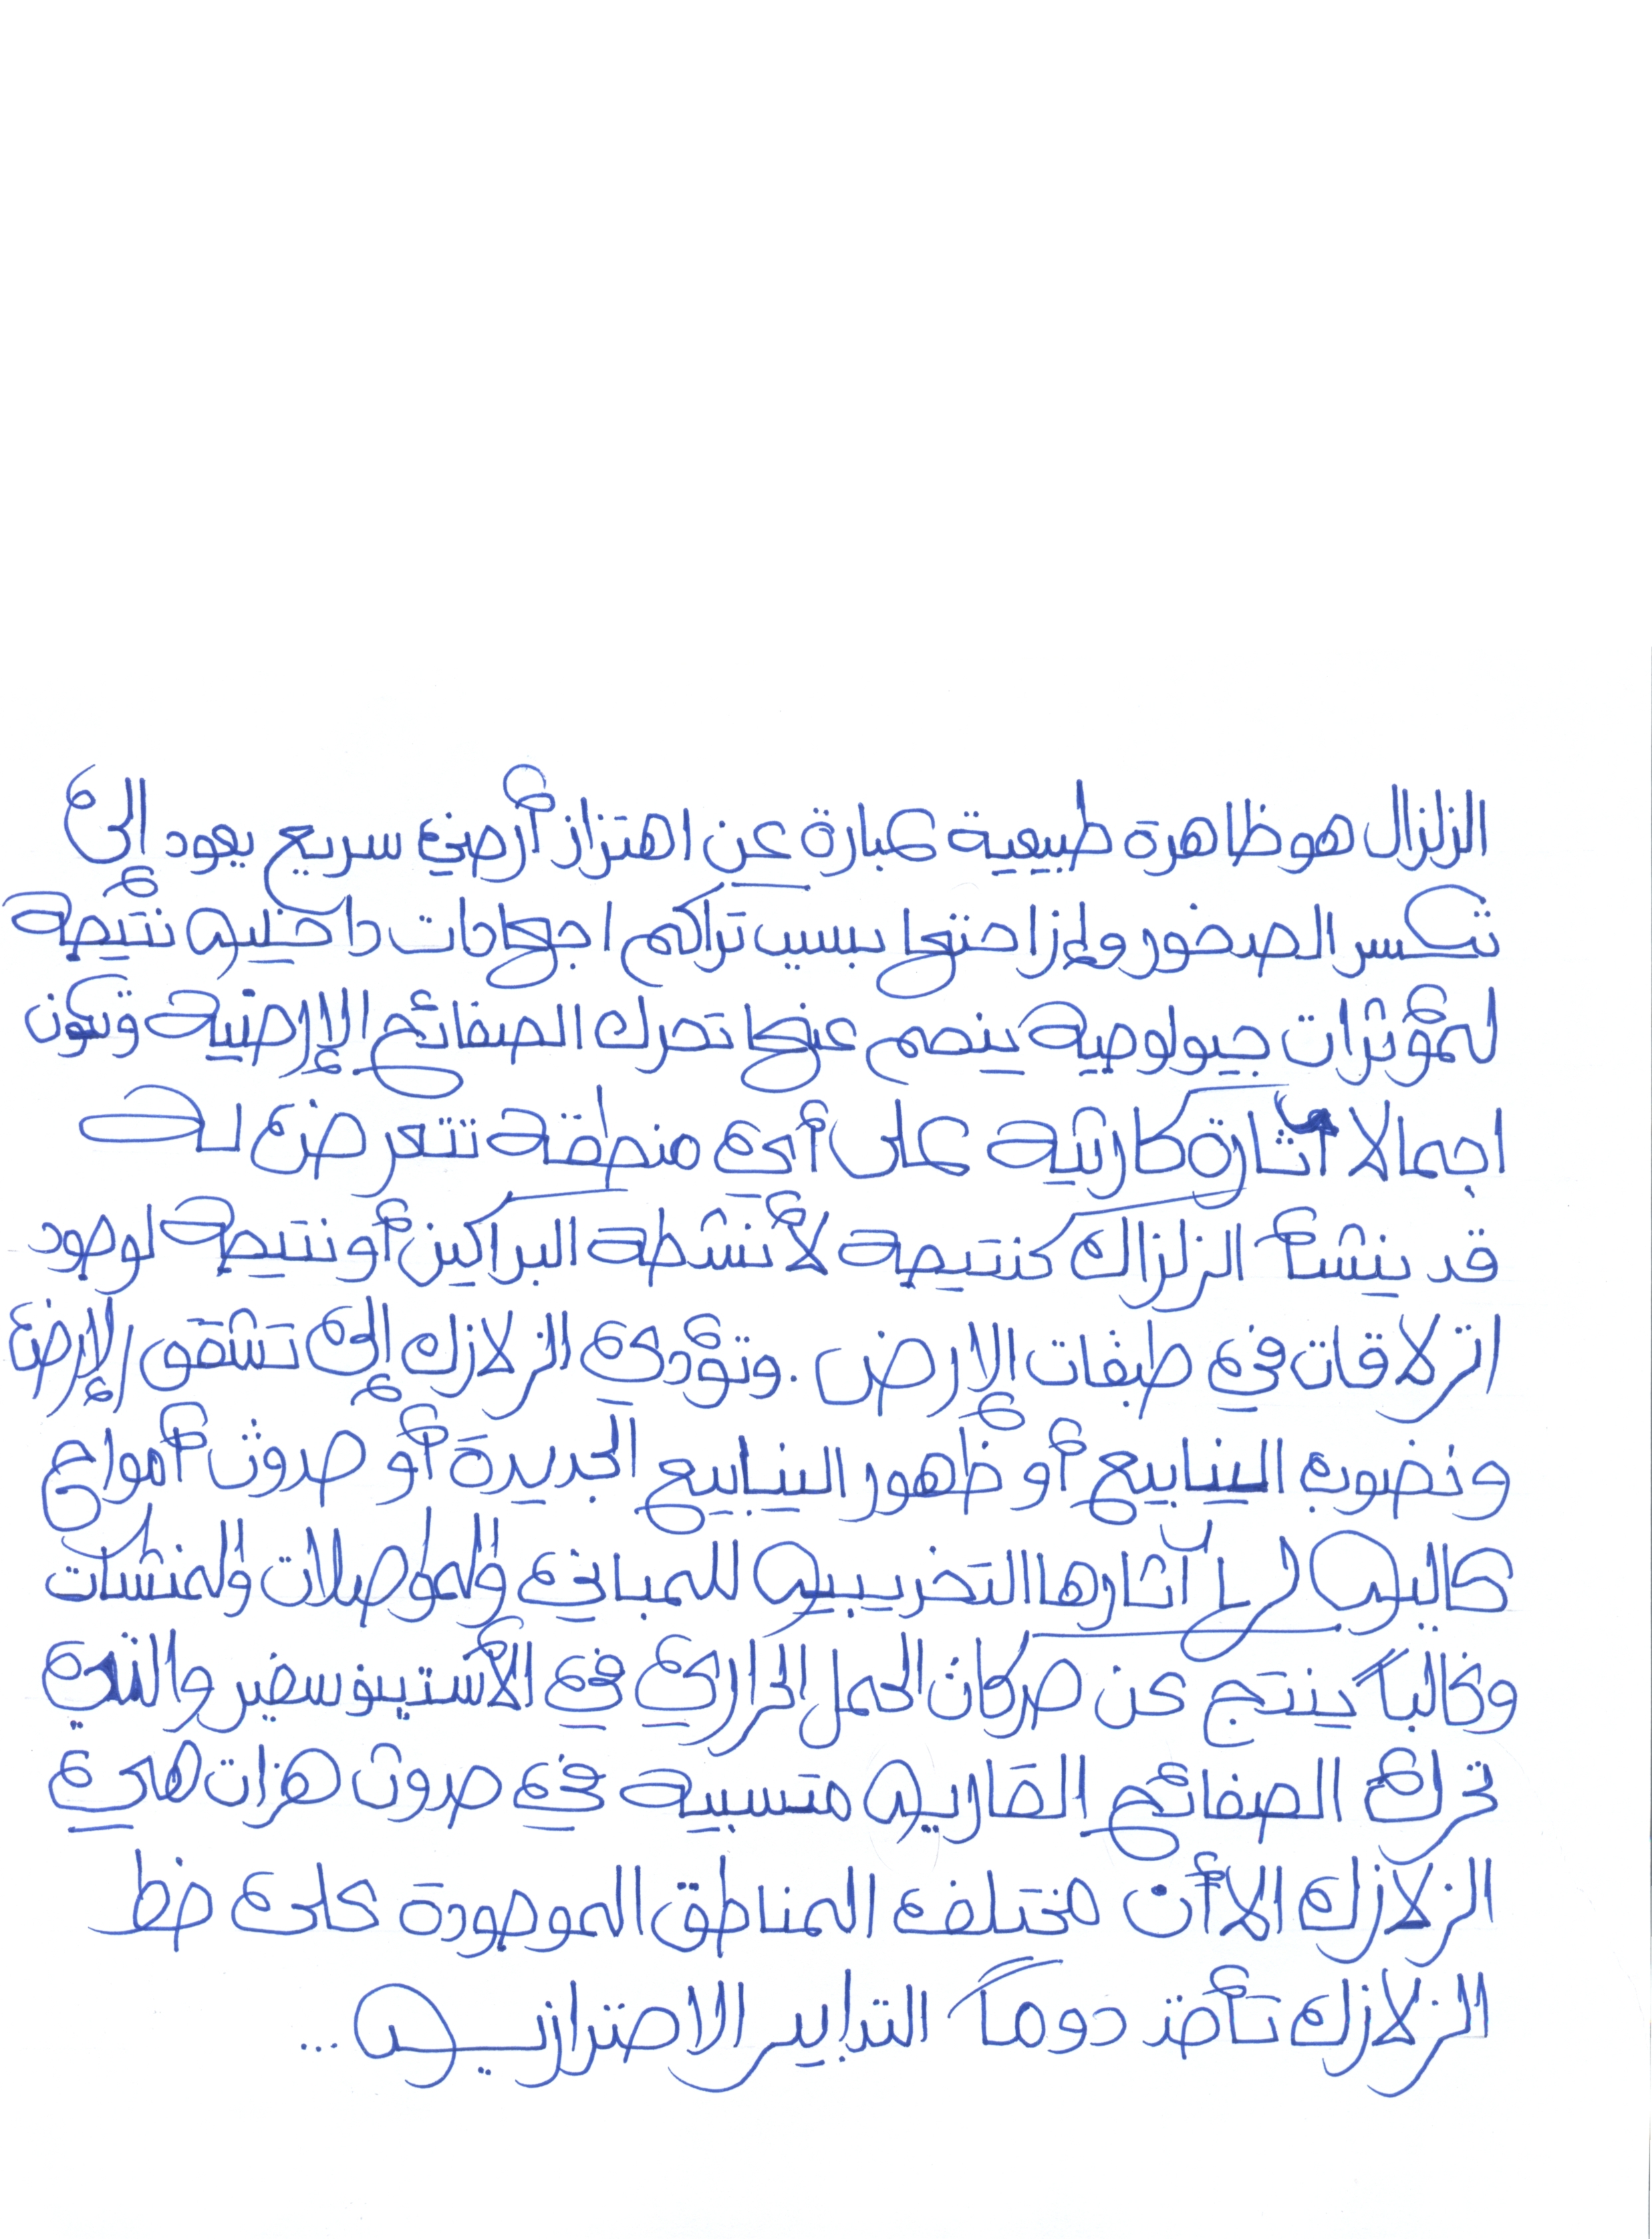 الزلزال هو ظاهرة طبيعية عبارة عن اهتزاز أرضي سريع يعود إلى
تكسر الصخور وإزاحتها بسبب تراكم اجهادات داخليه نتيجة
لمؤثرات جيولوجية ينجم عنها تحرك الصفائح الإرضية وتكون
اجمالا آثاره كارثية على أي منطقة تتعرض له
قد ينشأ الزلزال كنتيجة لأنشطة البراكين أو نتيجة لوجود
انزلاقات في طبقات الارض . وتؤدي الزلازل إلى تشقق الإرض
ونضوب الينابيع أو ظهور الينابيع الجديدة أو حدوث أمواج
عاليه لها آثارها التخريبيه للمباني والمواصلات والمنشآت
وغالباً ينتج عن حركات الحمل الحراري في الأستينوسفير والتي
تحرك الصفائح القاريه متسببة في حدوث هزات هي
الزلازل الا أن مختلف المناطق الموجودة على خط
الزلازل تأخذ دوماً التدابير الاحترازيه ...